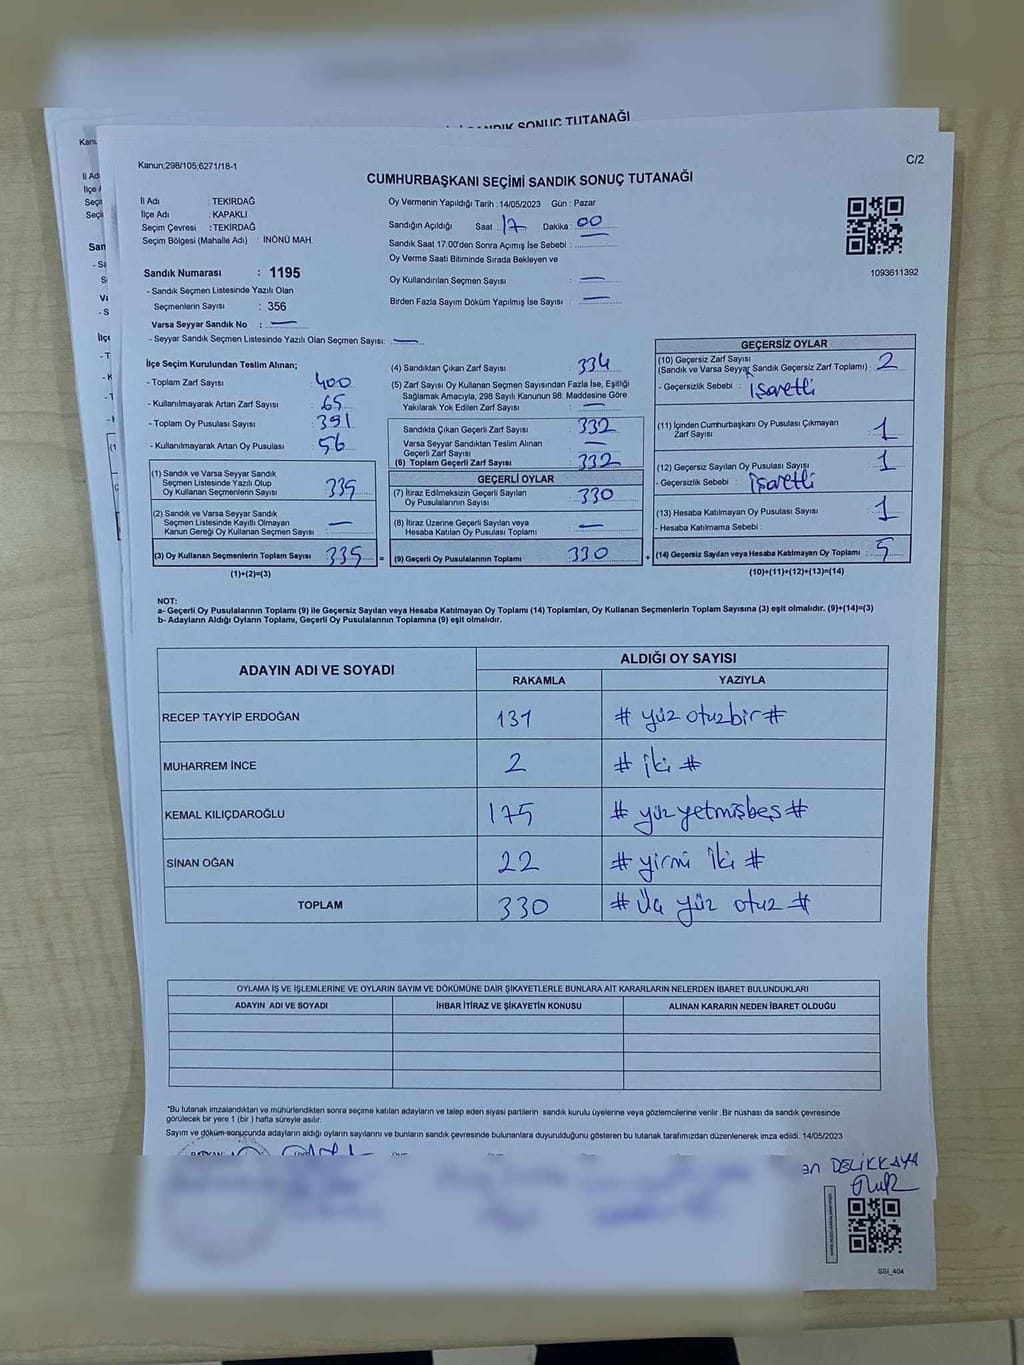 SANDIK SONUÇ TUTANAĞI
Kanun;298/105;6271/18-1
C/2
CUMHURBAŞKANI SEÇİMİ SANDIK SONUÇ TUTANAĞI
İl Adı : TEKİRDAĞ
İlçe Adı : KAPAKLI
Seçim Çevresi : TEKİRDAĞ
Seçim Bölgesi (Mahalle Adı) : İNÖNÜ MAH.
Sandık Numarası : 1195
- Sandık Seçmen Listesinde Yazılı Olan
Seçmenlerin Sayısı : 356
Varsa Seyyar Sandık No : —
- Seyyar Sandık Seçmen Listesinde Yazılı Olan Seçmen Sayısı: —
Oy Vermenin Yapıldığı Tarih : 14/05/2023 Gün : Pazar
Sandığın Açıldığı Saat : 17 Dakika : 00
Sandık Saat 17:00'den Sonra Açımış İse Sebebi : —
Oy Verme Saati Bitiminde Sırada Bekleyen ve
Oy Kullandırılan Seçmen Sayısı : —
Birden Fazla Sayım Döküm Yapılmış İse Sayısı : —
1093611392
İlçe Seçim Kurulundan Teslim Alınan;
- Toplam Zarf Sayısı : 400
- Kullanılmayarak Artan Zarf Sayısı : 65
- Toplam Oy Pusulası Sayısı : 391
- Kullanılmayarak Artan Oy Pusulası : 56
(1) Sandık ve Varsa Seyyar Sandık
Seçmen Listesinde Yazılı Olup
Oy Kullanan Seçmenlerin Sayısı : 335
(2) Sandık ve Varsa Seyyar Sandık
Seçmen Listesinde Kayıtlı Olmayan
Kanun Gereği Oy Kullanan Seçmen Sayısı : —
(3) Oy Kullanan Seçmenlerin Toplam Sayısı : 335 =
(1)+(2)=(3)
(4) Sandıktan Çıkan Zarf Sayısı : 334
(5) Zarf Sayısı Oy Kullanan Seçmen Sayısından Fazla İse, Eşitliği
Sağlamak Amacıyla, 298 Sayılı Kanunun 98. Maddesine Göre
Yakılarak Yok Edilen Zarf Sayısı : —
Sandıkta Çıkan Geçerli Zarf Sayısı : 332
Varsa Seyyar Sandıktan Teslim Alınan
Geçerli Zarf Sayısı : —
(6) Toplam Geçerli Zarf Sayısı : 332
GEÇERLİ OYLAR
(7) İtiraz Edilmeksizin Geçerli Sayılan
Oy Pusulalarının Sayısı : 330
(8) İtiraz Üzerine Geçerli Sayılan veya
Hesaba Katılan Oy Pusulası Toplamı : —
(9) Geçerli Oy Pusulalarının Toplamı : 330 +
GEÇERSİZ OYLAR
(10) Geçersiz Zarf Sayısı
(Sandık ve Varsa Seyyar Sandık Geçersiz Zarf Toplamı) : 2
- Geçersizlik Sebebi : işaretli
(11) İçinden Cumhurbaşkanı Oy Pusulası Çıkmayan
Zarf Sayısı : 1
(12) Geçersiz Sayılan Oy Pusulası Sayısı : 1
- Geçersizlik Sebebi : işaretli
(13) Hesaba Katılmayan Oy Pusulası Sayısı : 1
- Hesaba Katılmama Sebebi :
(14) Geçersiz Sayılan veya Hesaba Katılmayan Oy Toplamı : 5
(10)+(11)+(12)+(13)=(14)
NOT:
a- Geçerli Oy Pusulalarının Toplamı (9) ile Geçersiz Sayılan veya Hesaba Katılmayan Oy Toplamı (14) Toplamları, Oy Kullanan Seçmenlerin Toplam Sayısına (3) eşit olmalıdır. (9)+(14)=(3)
b- Adayların Aldığı Oyların Toplamı, Geçerli Oy Pusulalarının Toplamına (9) eşit olmalıdır.
ADAYIN ADI VE SOYADI
ALDIĞI OY SAYISI
RAKAMLA YAZIYLA
RECEP TAYYİP ERDOĞAN 131 # yüz otuzbir #
MUHARREM İNCE 2 # iki #
KEMAL KILIÇDAROĞLU 175 # yüz yetmişbeş #
SİNAN OĞAN 22 # yirmi iki #
TOPLAM 330 # Üç yüz otuz #
OYLAMA İŞ VE İŞLEMLERİNE VE OYLARIN SAYIM VE DÖKÜMÜNE DAİR ŞİKAYETLERLE BUNLARA AİT KARARLARIN NELERDEN İBARET BULUNDUKLARI
ADAYIN ADI VE SOYADI İHBAR İTİRAZ VE ŞİKAYETİN KONUSU ALINAN KARARIN NEDEN İBARET OLDUĞU
*Bu tutanak imzalandıktan ve mühürlendikten sonra seçime katılan adayların ve talep eden siyasi partilerin sandık kurulu üyelerine veya gözlemcilerine verilir .Bir nüshası da sandık çevresinde
görülecek bir yere 1 (bir ) hafta süreyle asılır.
Sayım ve döküm sonucunda adayların aldığı oyların sayılarını ve bunların sandık çevresinde bulunanlara duyurulduğunu gösteren bu tutanak tarafımızdan düzenlenerek imza edildi. 14/05/2023
DELİKKAYA
SSI_404